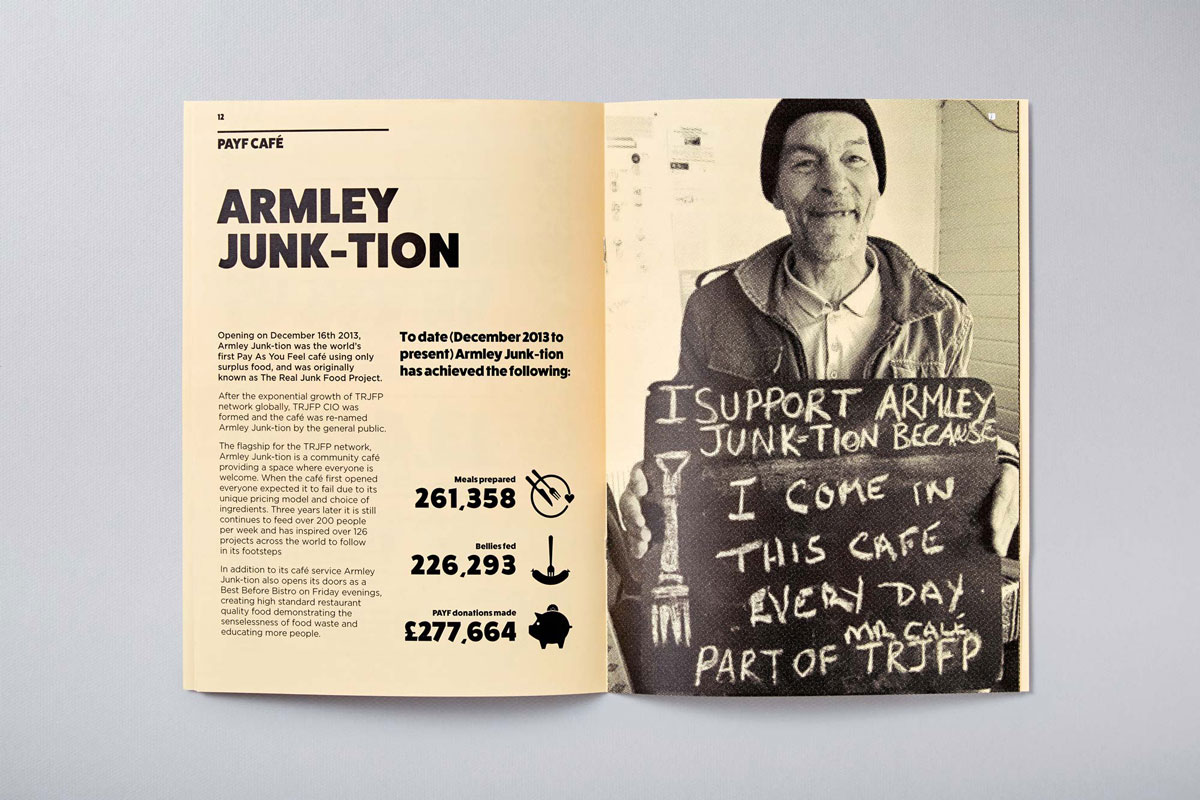 12
PAYF CAFÉ
ARMLEY
JUNK-TION
Opening on December 16th 2013,
Armley Junk-tion was the world's
first Pay As You Feel café using only
surplus food, and was originally
known as The Real Junk Food Project.
After the exponential growth of TRJFP
network globally, TRJFP CIO was
formed and the café was re-named
Armley Junk-tion by the general public.
The flagship for the TRJFP network,
Armley Junk-tion is a community café
providing a space where everyone is
welcome. When the café first opened
everyone expected it to fail due to its
unique pricing model and choice of
ingredients. Three years later it is still
continues to feed over 200 people
per week and has inspired over 126
projects across the world to follow
in its footsteps
In addition to its café service Armley
Junk-tion also opens its doors as a
Best Before Bistro on Friday evenings,
creating high standard restaurant
quality food demonstrating the
senselessness of food waste and
educating more people.
To date (December 2013 to
present) Armley Junk-tion
has achieved the following:
Meals prepared
261,358
Bellies fed
226,293
PAYF donations made
£277,664
13
I SUPPORT ARMLEY
JUNK-TION BECAUSE
I COME IN
THIS CAFE
EVERY DAY
MR CALE
PART OF TRJFP